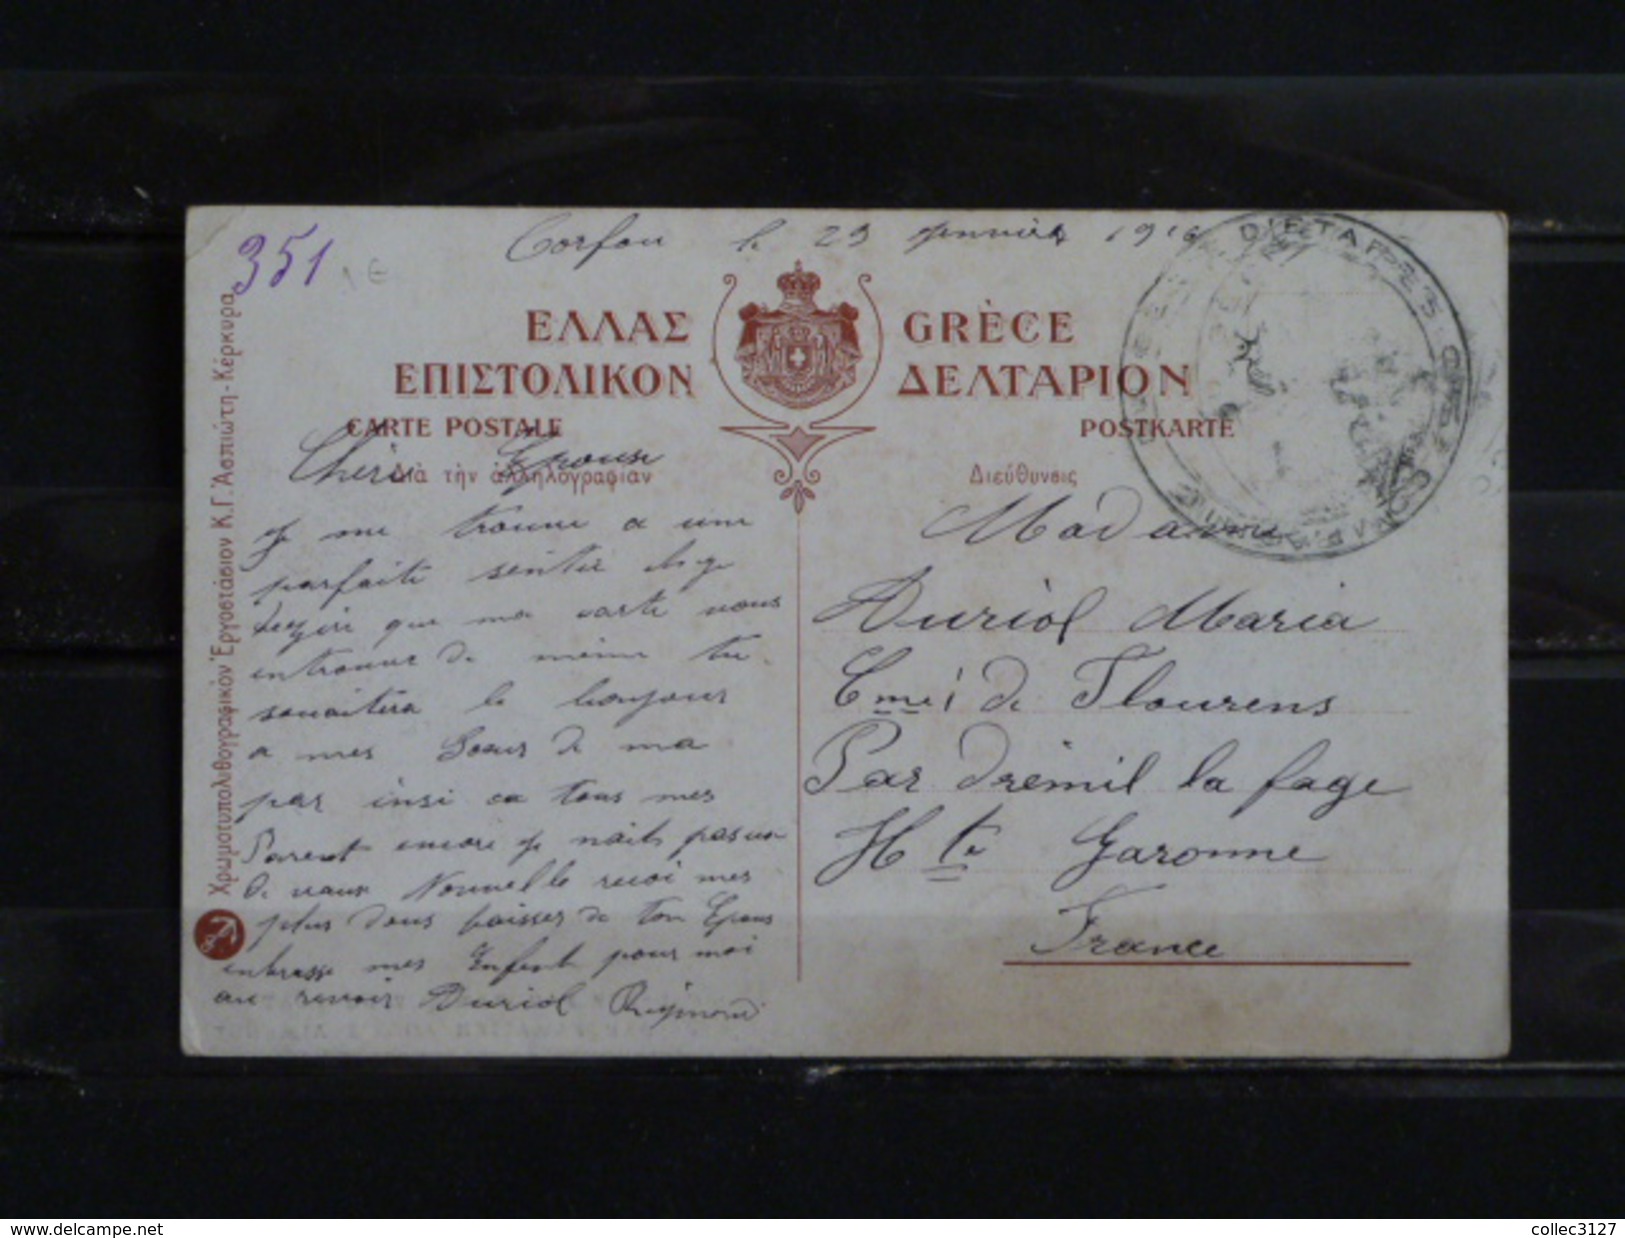 351
1 €
Corfou le 29 janvier 1916
ΕΛΛΑΣ GRÈCE
ΕΠΙΣΤΟΛΙΚΟΝ ΔΕΛΤΑΡΙΟΝ
CARTE POSTALE POSTKARTE
Διὰ τὴν ἀλληλογραφίαν Διεύθυνσις
Chère Epouse
je me trouve a une
parfaite sentie
que ma carte vous
entrouve de même tu
souaitera le bonjour
a mes Soeur de ma
par insi ca tous mes
Parent encore je
de vous Nouvelle recoi mes
plus dous baisser de ton Epous
enbrasse mes Enfent pour moi
au revoir Duriol Raymond
Madame
Duriol Maria
Cme de Flourens
Par drémil la fage
Hte Garonne
France
Χρωμοτυπολιθογραφικὸν Ἐργοστάσιον Κ. Γ. Ἀσπιώτη - Κέρκυρα
http://www.delcampe.net
collec3127